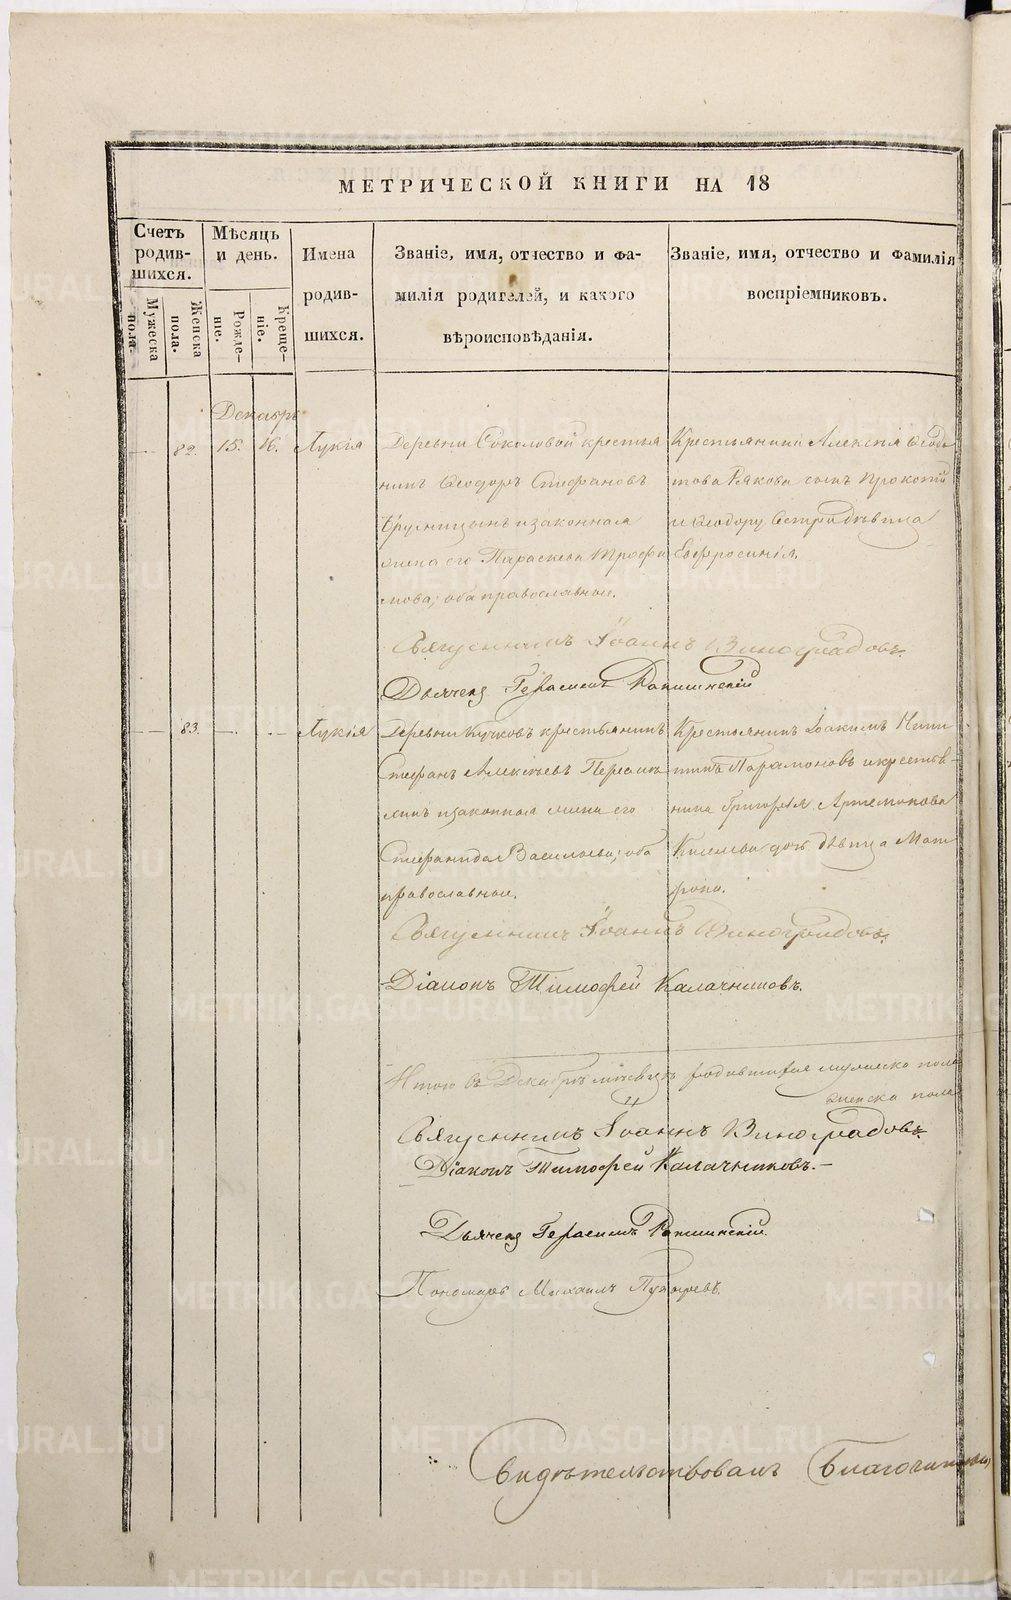 МЕТРИЧЕСКОЙ КНИГИ НА 18
Счетъ родив-шихся.
Мужеска пола.
Женска пола.
Мѣсяцъ и день.
Рожде-ніе.
Креще-ніе.
Имена родив-шихся.
Званіе, имя, отчество и фа-
милія родителей, и какого
вѣроисповѣданія.
Званіе, имя, отчество и фамилія
воспріемниковъ.
Декабрь
82. 15. 16. Лукія
Деревни Соколовой крестья
нинъ Ѳеодоръ Стефановъ
и законная
жена его Параскева Трофи
мова; оба православные.
Крестьянина Алексія Ѳеодо
това сынъ Прокопій
и Ѳеодору дѣвица
Евфросинія.
Священникъ Іоаннъ Виноградовъ.
Дьячекъ Герасимъ
83. Лукія
Деревни крестьянинъ
Стефанъ Алексіевъ
и законная жена его
Стефанида Васильева; оба
православные.
Крестьянинъ Іоакимъ Ники
тинъ Парамоновъ и крестья-
нина Григорія Артемонова
Киселева дочь дѣвица Мат
рона.
Священникъ Іоаннъ Виноградовъ.
Діаконъ Тимофей Калачниковъ.
Итого въ Декабрѣ мѣсяцѣ родившихся мужеска пола
женска пола
Священникъ Іоаннъ Виноградовъ
Діаконъ Тимофей Калачниковъ.—
Дьячекъ Герасимъ
Пономарь Михаилъ
Свидѣтельствовалъ Благочинный
METRIKI.GASO-URAL.RU